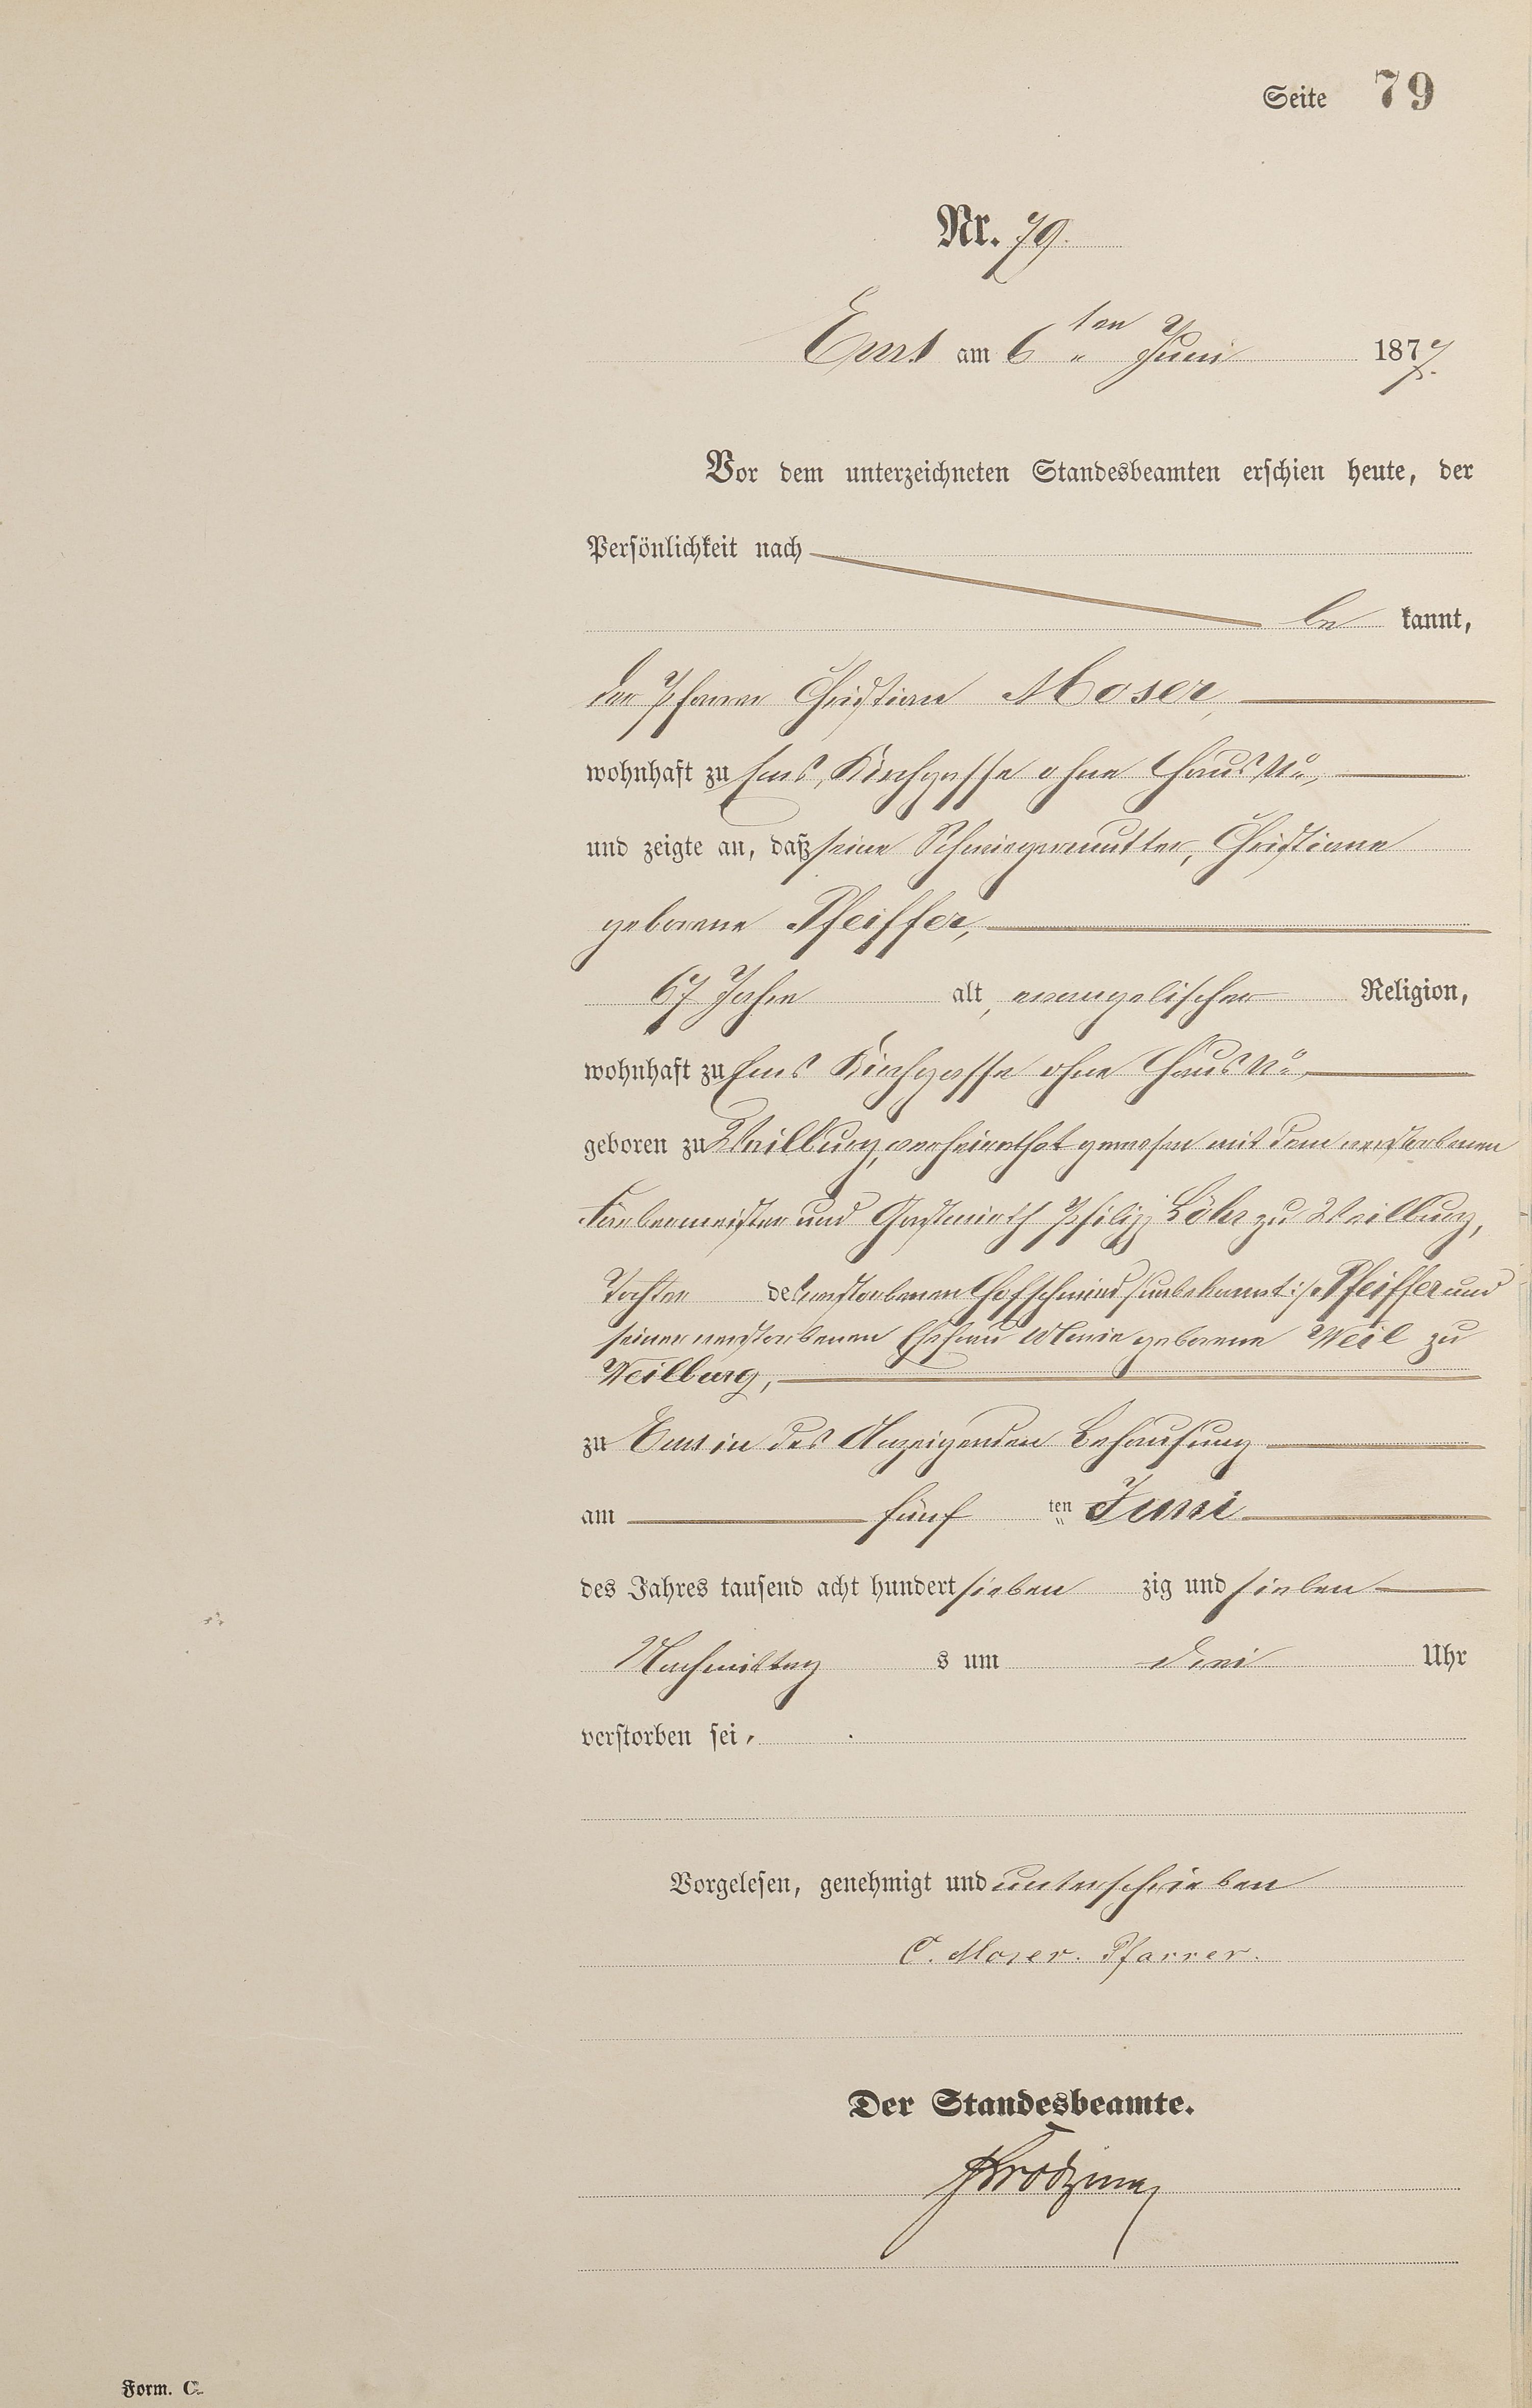 Seite 79
Nr. 79.
Ems am 6 ten Juni 1877.
Vor dem unterzeichneten Standesbeamten erschien heute, der
Persönlichkeit nach
be kannt,
der Pfarrer Christian Moser,
wohnhaft zu Ems, Kirchgasse ohne Haus No,
und zeigte an, daß seine Schwiegermutter, Christiane
geborene Pfeiffer,
67 Jahre alt, evangelischer Religion,
wohnhaft zu Ems Kirchgasse ohne Haus No,
geboren zu Weilburg, verheirathet gewesen mit dem verstorbenen
Färbermeister und Gastwirth Philipp Löhr zu Weilburg,
Tochter des verstorbenen Hofschmied /:unbekannt:/ Pfeiffer und
seiner verstorbenen Ehefrau Marie geborene Weil zu
Weilburg,
zu Ems in des Anzeigenden Behausung
am fünf ten Juni
des Jahres tausend acht hundert sieben zig und sieben
Nachmittag s um drei Uhr
verstorben sei,
Vorgelesen, genehmigt und unterschrieben
C. Moser. Pfarrer.
Der Standesbeamte.
Form. C.